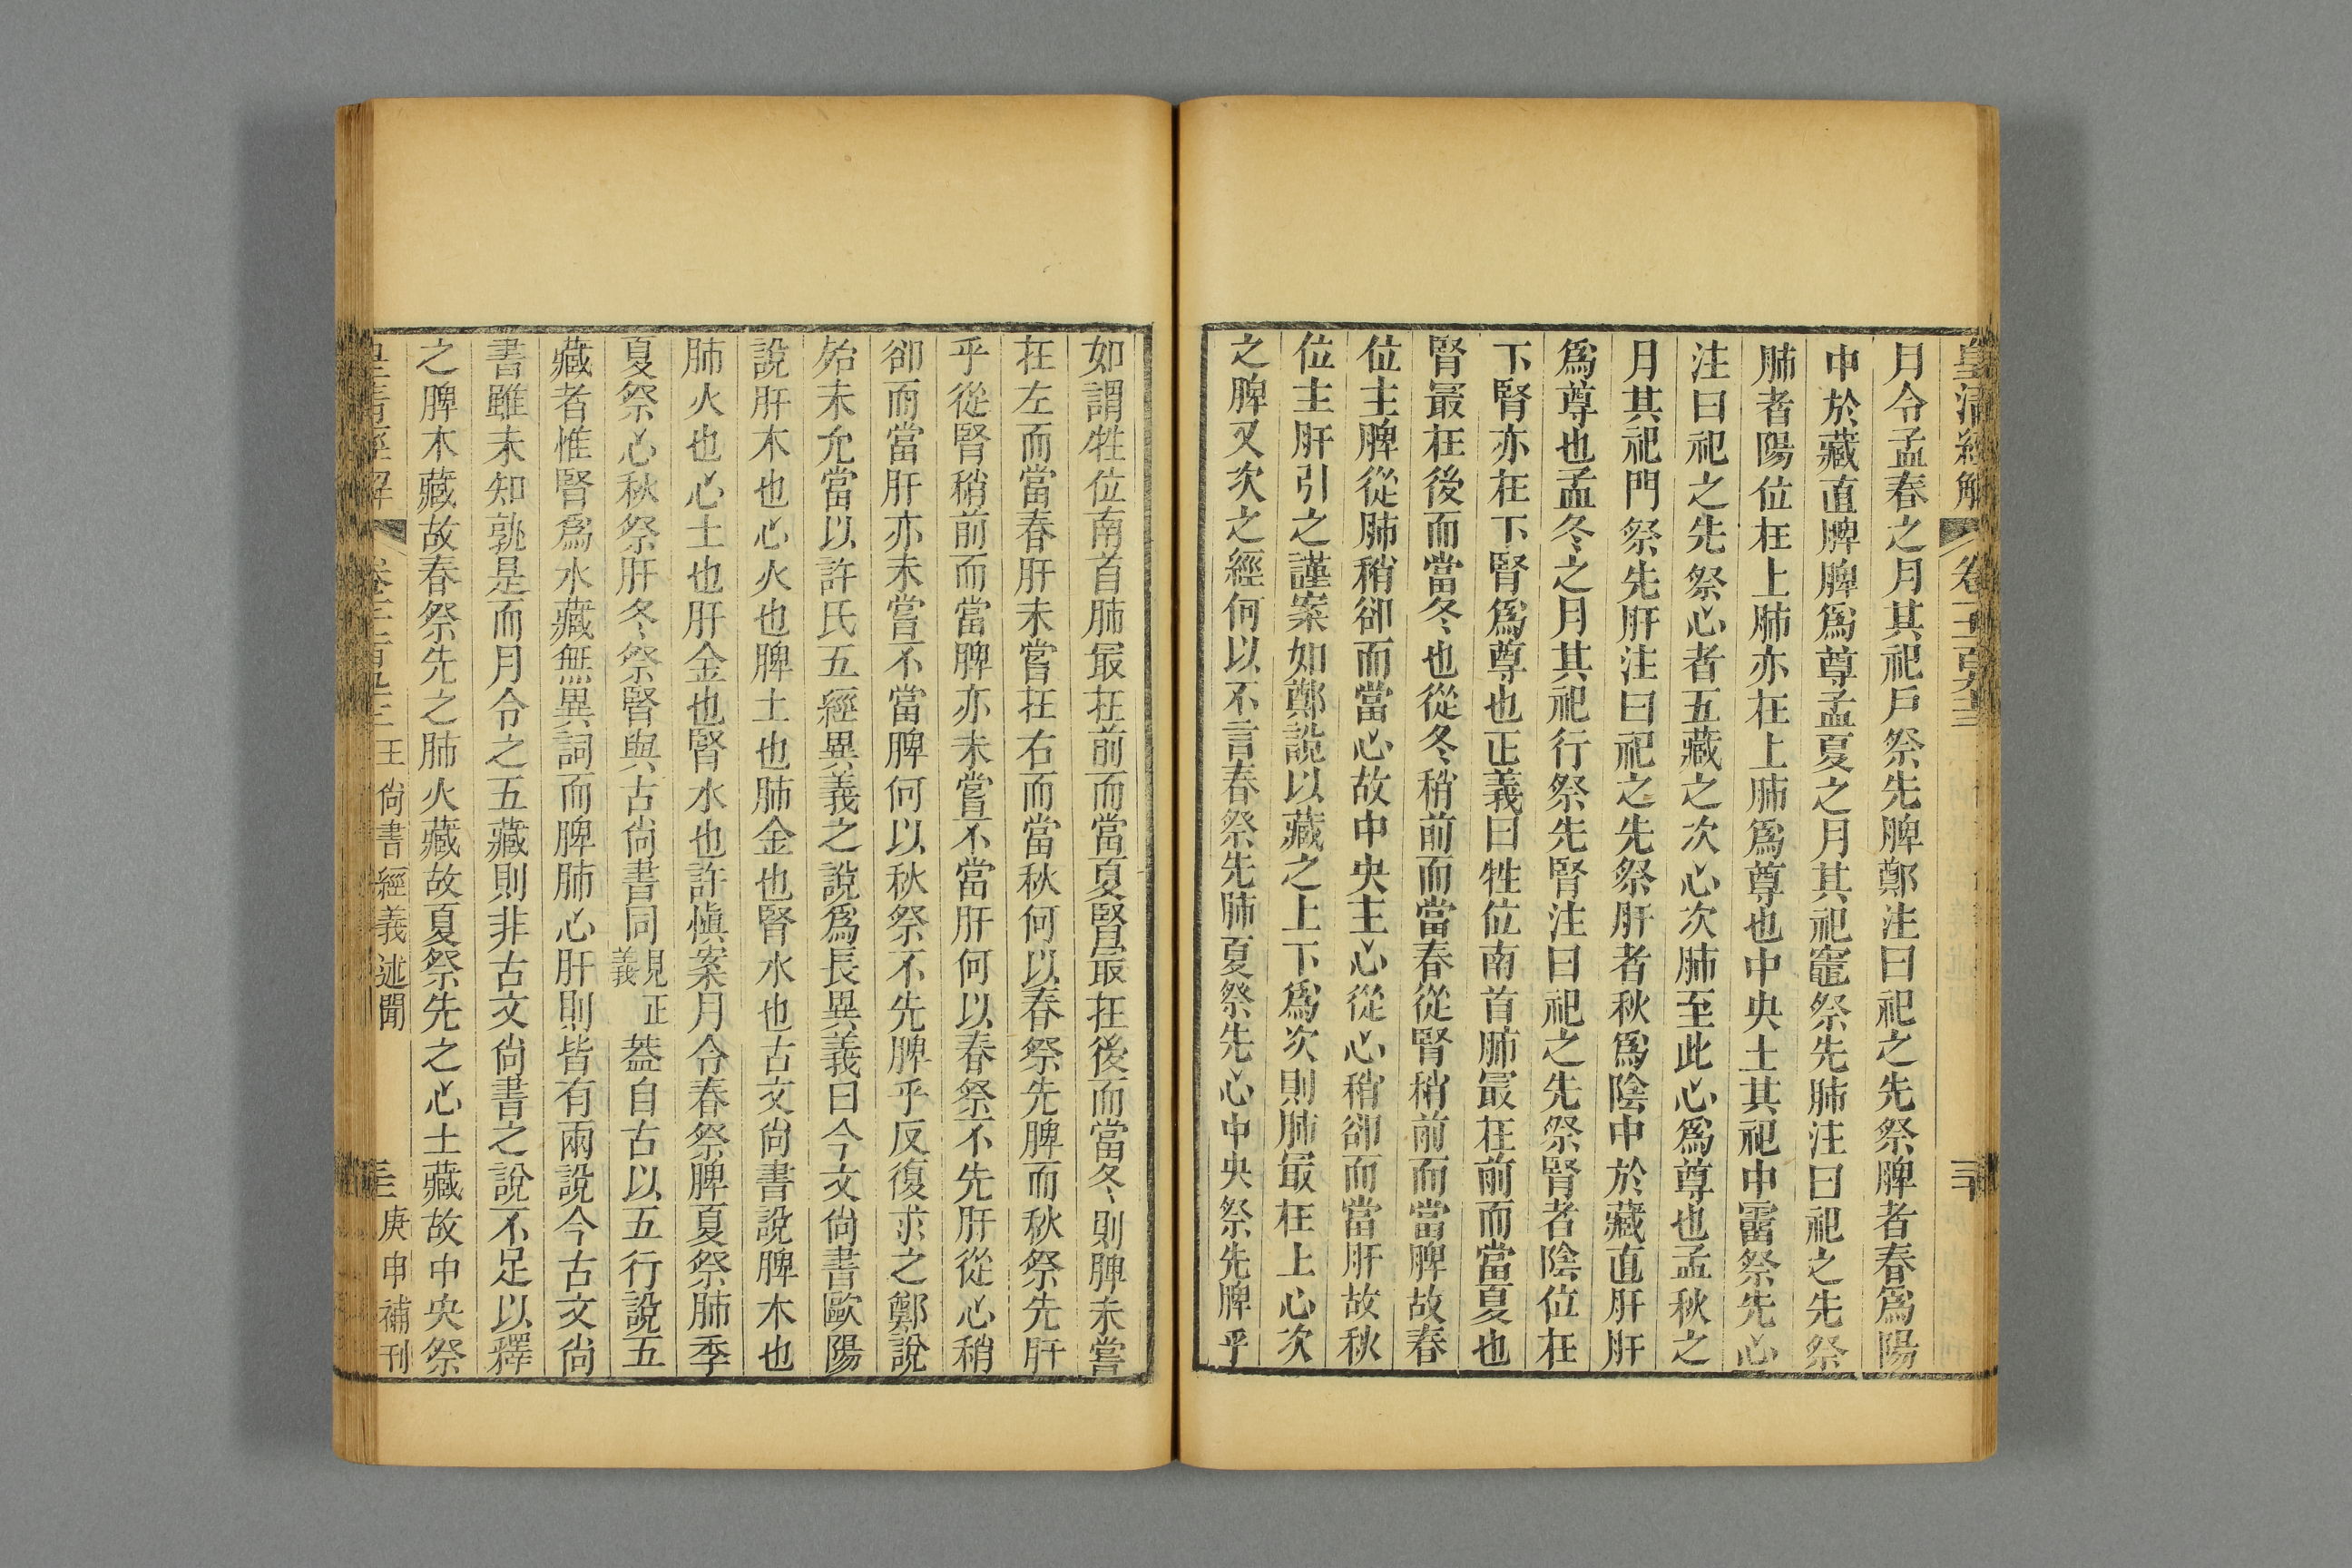 皇清經解
卷
月令孟春之月其祀戶祭先脾鄭注曰祀之先祭脾者春爲陽
中於藏直脾脾爲尊孟夏之月其祀竈祭先肺注曰祀之先祭
肺者陽位在上肺亦在上肺爲尊也中央土其祀中霤祭先心
注曰祀之先祭心者五藏之次心次肺至此心爲尊也孟秋之
月其祀門祭先肝注曰祀之先祭肝者秋爲陰中於藏直肝肝
爲尊也孟冬之月其祀行祭先腎注曰祀之先祭腎者陰位在
下腎亦在下腎爲尊也正義曰牲位南首肺最在前而當夏也
腎最在後而當冬也從冬稍前而當春從腎稍前而當脾故春
位主脾從肺稍卻而當心故中央主心從心稍卻而當肝故秋
位主肝引之謹案如鄭說以藏之上下爲次則肺最在上心次
之脾又次之經何以不言春祭先肺夏祭先心中央祭先脾乎
如謂牲位南首肺最在前而當夏腎最在後而當冬則脾未嘗
在左而當春肝未嘗在右而當秋何以春祭先脾而秋祭先肝
乎從腎稍前而當脾亦未嘗不當肝何以春祭不先肝從心稍
卻而當肝亦未嘗不當脾何以秋祭不先脾乎反復求之鄭說
殆未允當以許氏五經異義之說爲長異義曰今文尙書歐陽
說肝木也心火也脾土也肺金也腎水也古文尙書說脾木也
肺火也心土也肝金也腎水也許愼案月令春祭脾夏祭肺季
夏祭心秋祭肝冬祭腎與古尙書同見正義葢自古以五行說五
藏者惟腎爲水藏無異詞而脾肺心肝則皆有兩說今古文尙
書雖未知孰是而月令之五藏則非古文尙書之說不足以釋
之脾木藏故春祭先之肺火藏故夏祭先之心土藏故中央祭
皇清經解
王尙書經義述聞
庚申補刊